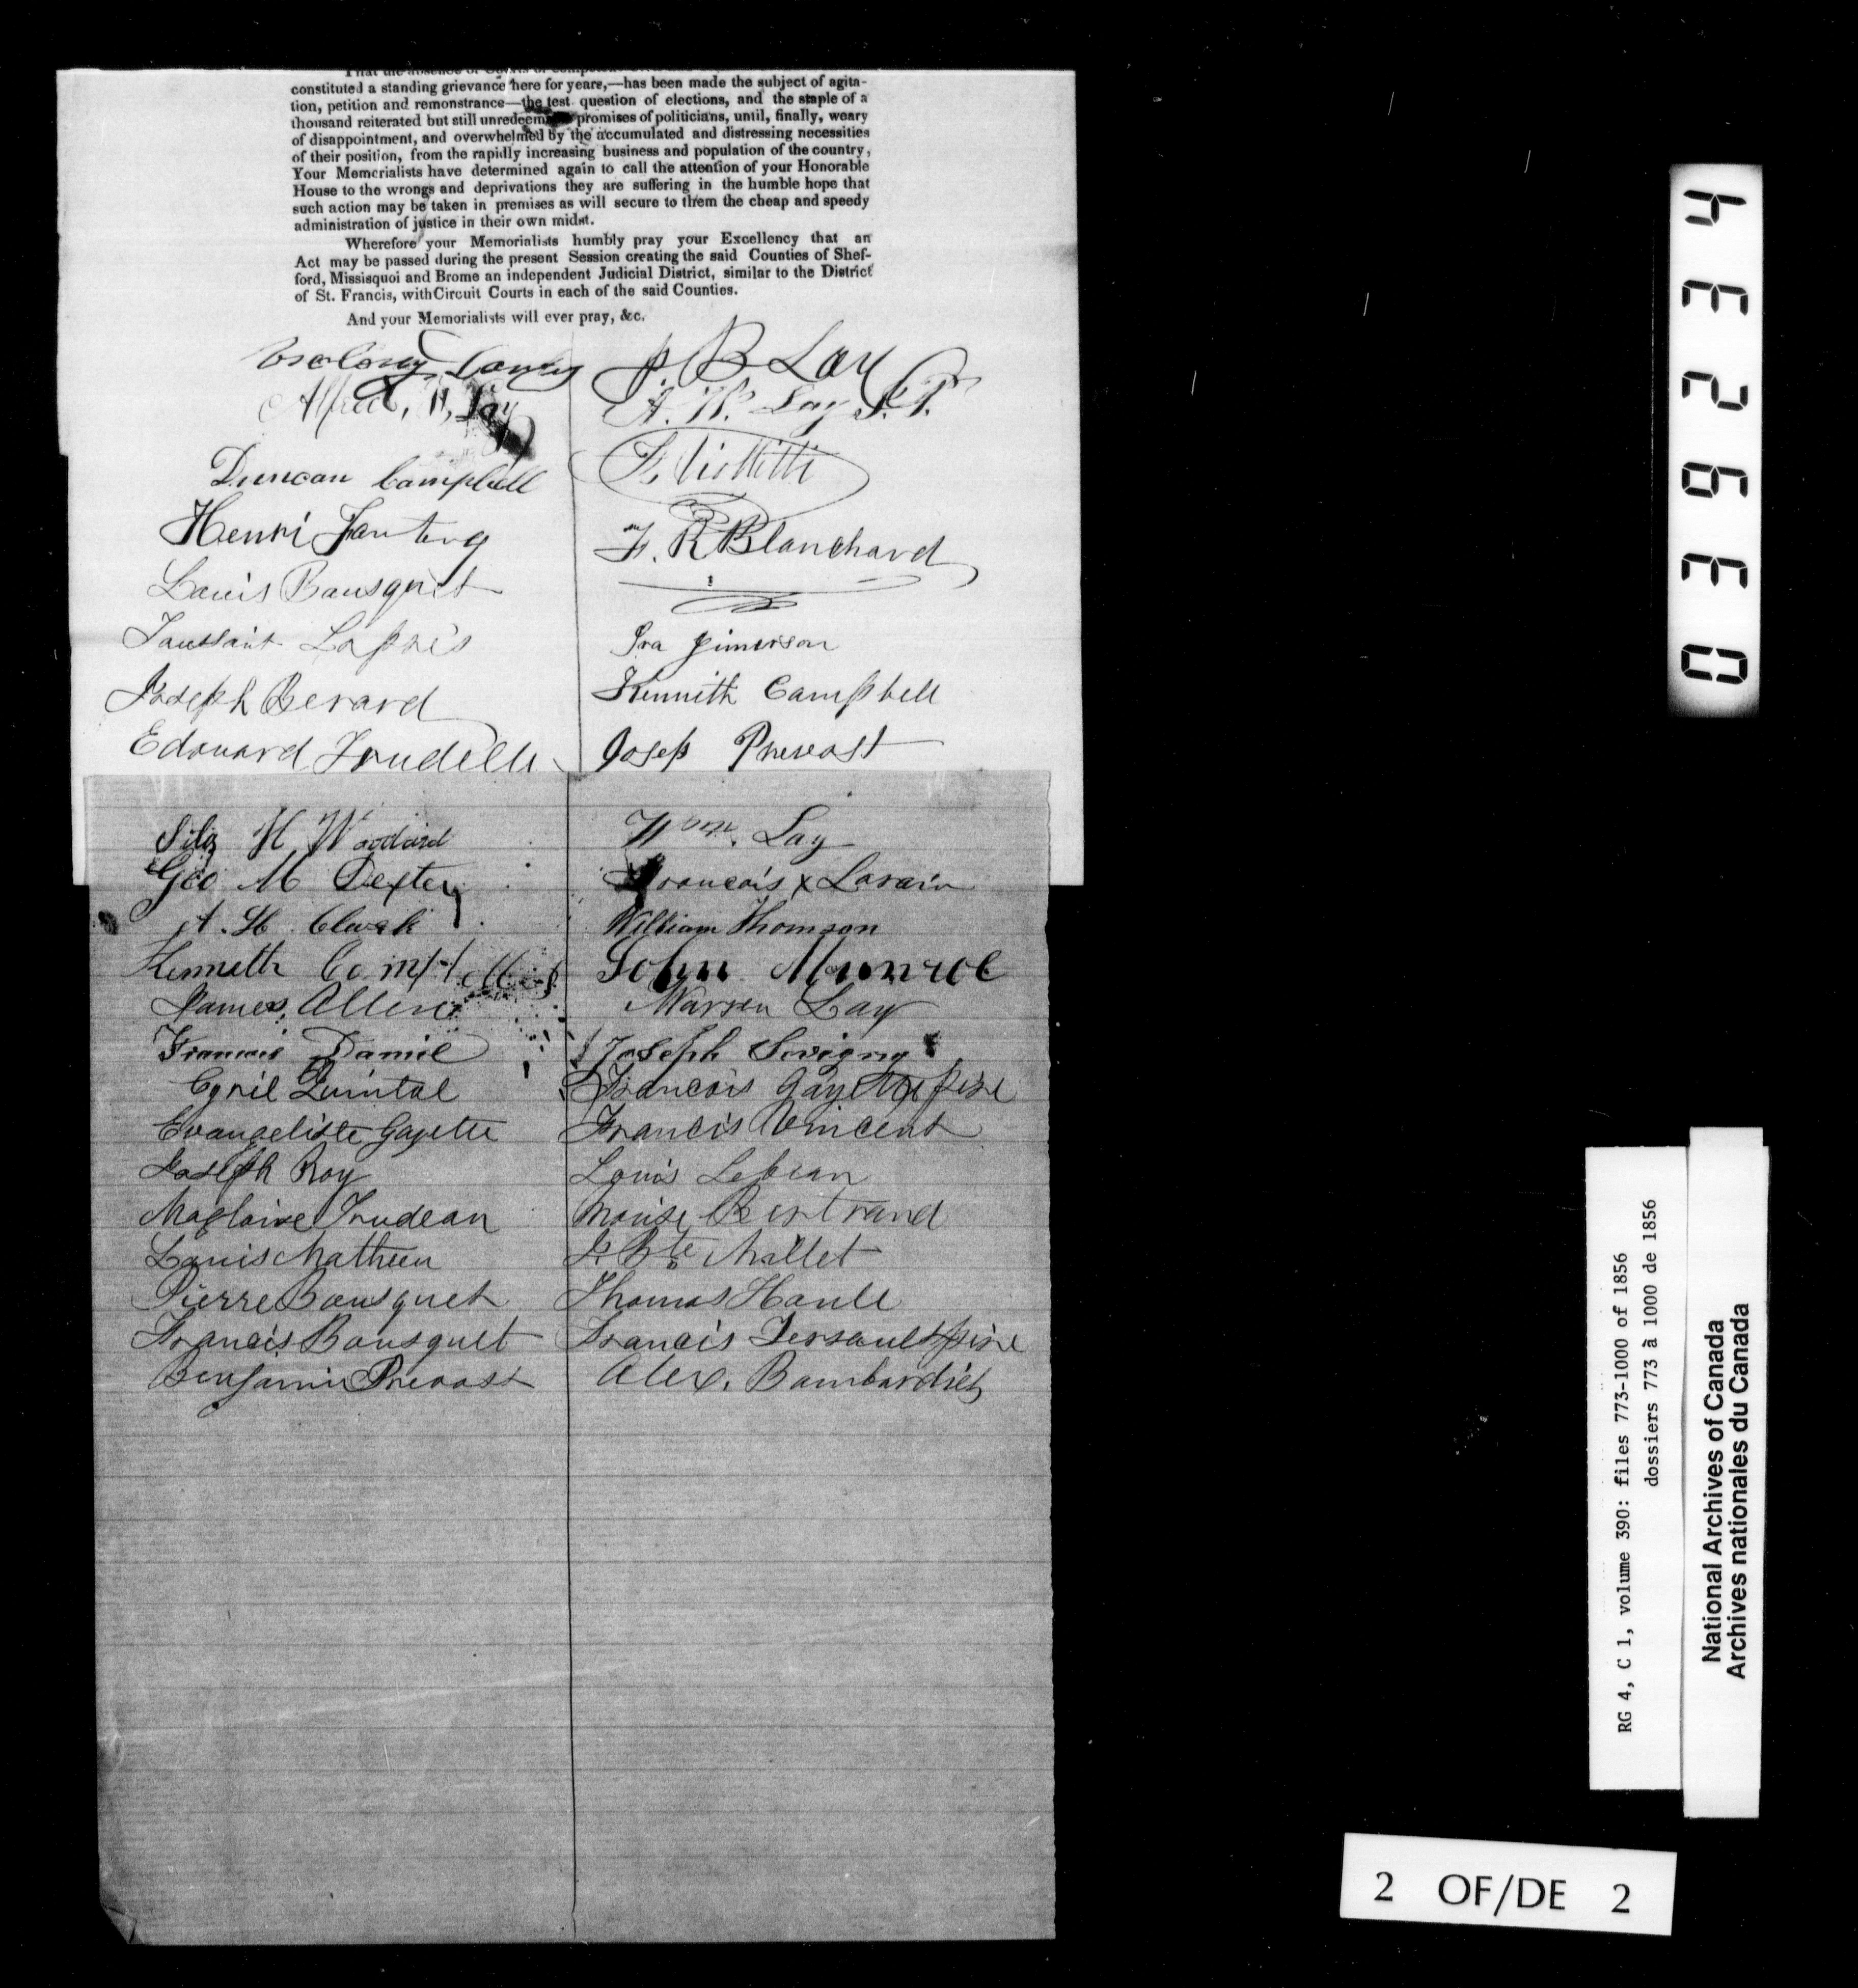 That the absence of Courts of
constituted a standing grievance here for years,—has been made the subject of agita-
tion, petition and remonstrance—the test question of elections, and the staple of a
thousand reiterated but still unredeemed promises of politicians, until, finally, weary
of disappointment, and overwhelmed by the accumulated and distressing necessities
of their position, from the rapidly increasing business and population of the country,
Your Memorialists have determined again to call the attention of your Honorable
House to the wrongs and deprivations they are suffering in the humble hope that
such action may be taken in premises as will secure to them the cheap and speedy
administration of justice in their own midst.
Wherefore your Memorialists humbly pray your Excellency that an
Act may be passed during the present Session creating the said Counties of Shef-
ford, Missisquoi and Brome an independent Judicial District, similar to the District
of St. Francis, with Circuit Courts in each of the said Counties.
And your Memorialists will ever pray, &c.
Alfred
Duncan Campbell
Henri
Louis Bousquet
Toussaint
Joseph Berard
Edouard Trudelle
B Lay
Lay J.P.
F. R Blanchard
Ira Jimerson
Kennith Campbell
Josep Prevost
Silas H Woodard
Geo M Dexter
A. H. Clark
Kenneth Campbell
James Allen
Francois Daniel
Cyril Quintal
Evangeliste Gayette
Joseph Roy
Magloire Trudeau
Louis Mathieu
Pierre Bousquet
Francis Bousquet
Benjamin Prevost
Wm. Lay
Francois x Lorain
William Thomson
John Munroe
Warren Lay
Joseph Sevigny
Francois Gayette pere
Francis Vincent
Louis Lebeau
Moise Bertrand
J. Bte Mallet
Thomas Houle
Francis pere
Alex. Bombardier
03624
RG 4, C 1, volume 390: files 773-1000 of 1856
dossiers 773 à 1000 de 1856
National Archives of Canada
Archives nationales du Canada
2 OF/DE 2